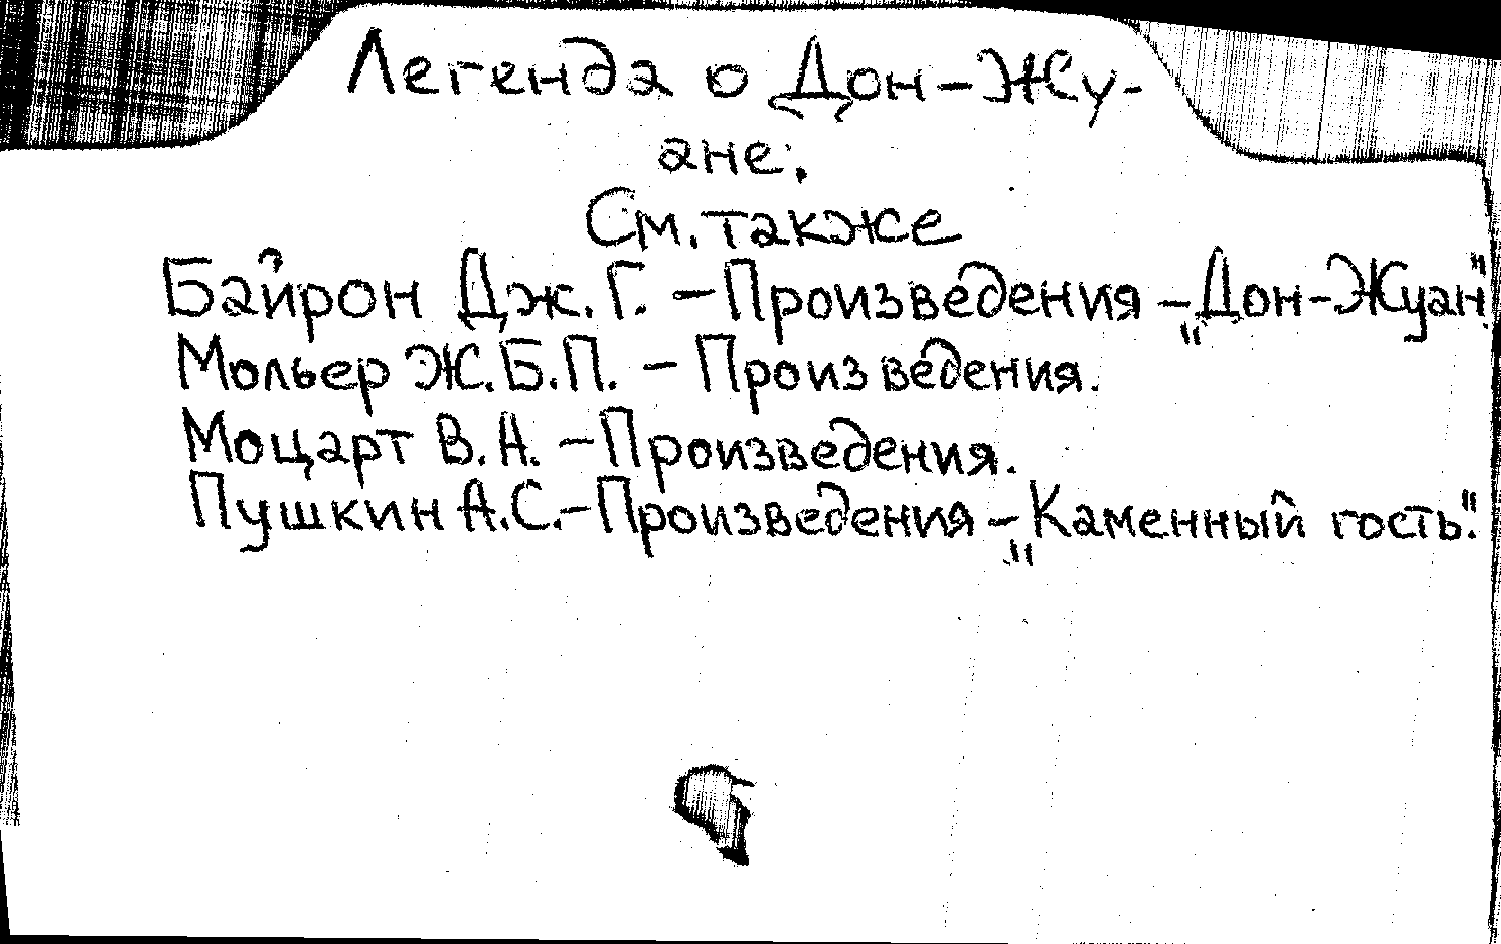 Легенда о Дон-Жу-
ане.
См. также
Байрон Дж. Г. – Произведения – „Дон-Жуан"
Мольер Ж.Б.П. – Произведения.
Моцарт В.А. – Произведения.
Пушкин А.С. – Произведения – „Каменный гость".